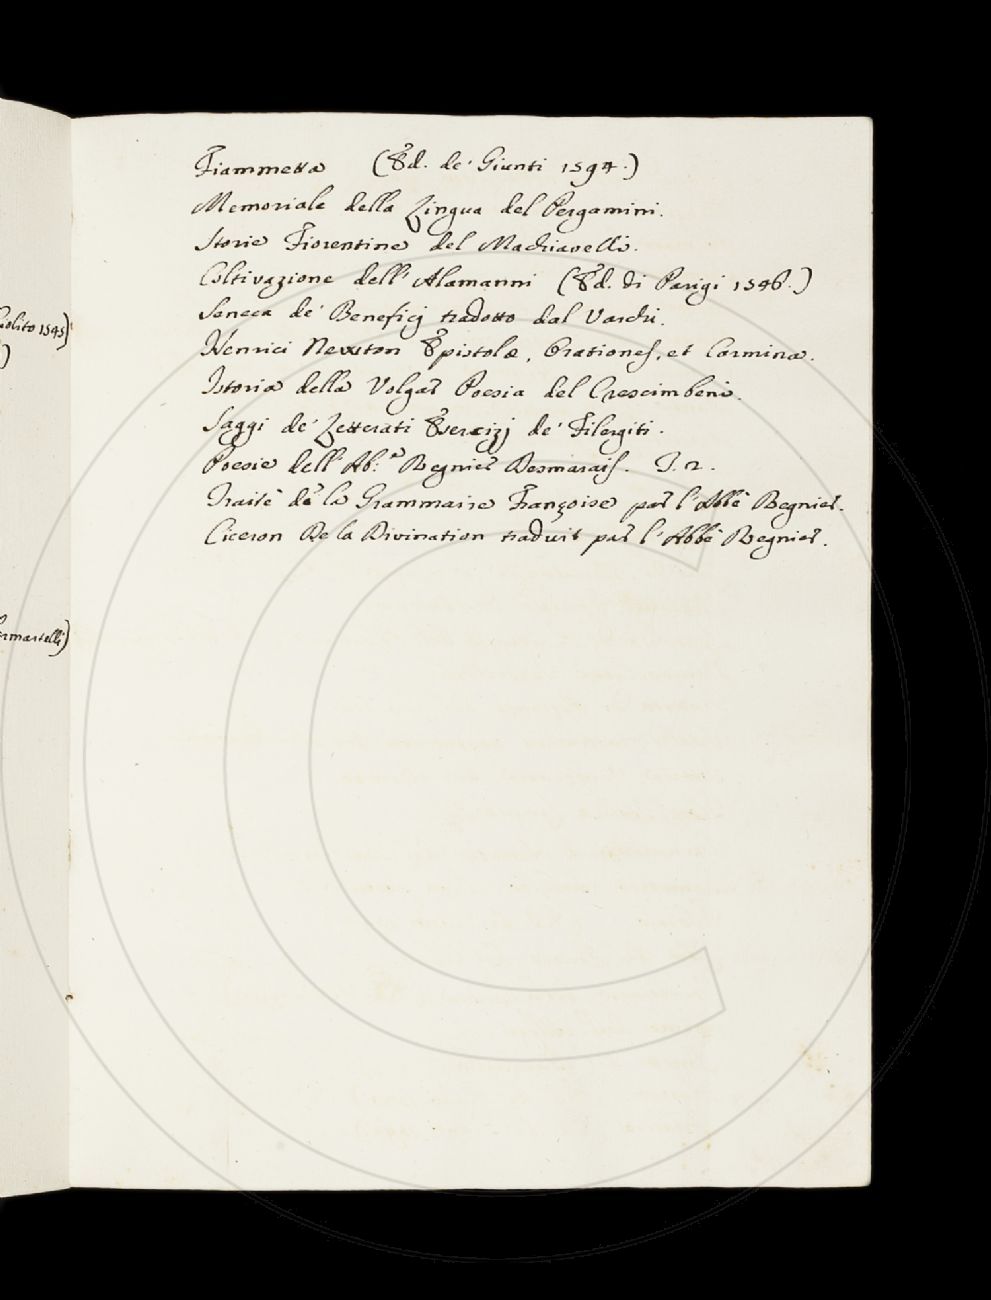 Fiammetta (Ed. de' Giunti 1594.)
Memoriale della Lingua del Pergamini.
Storie Fiorentine del Machiavelli.
Coltivazione dell' Alamanni (Ed. di Parigi 1546.)
Seneca de' Beneficj tradotto dal Varchi.
Henrici Newton Epistolæ, Orationes, et Carmina.
Istoria della Volgar Poesia del Crescimbeni.
Saggi de' Letterati Esercizj de' Filergiti.
Poesie dell' Ab.e Regnier Desmarais. T. 2.
Traité de la Grammaire Françoise par l'Abbé Regnier.
Ciceron De la Divination traduit par l'Abbé Regnier.
Giolito 1545)
)
ermartelli)